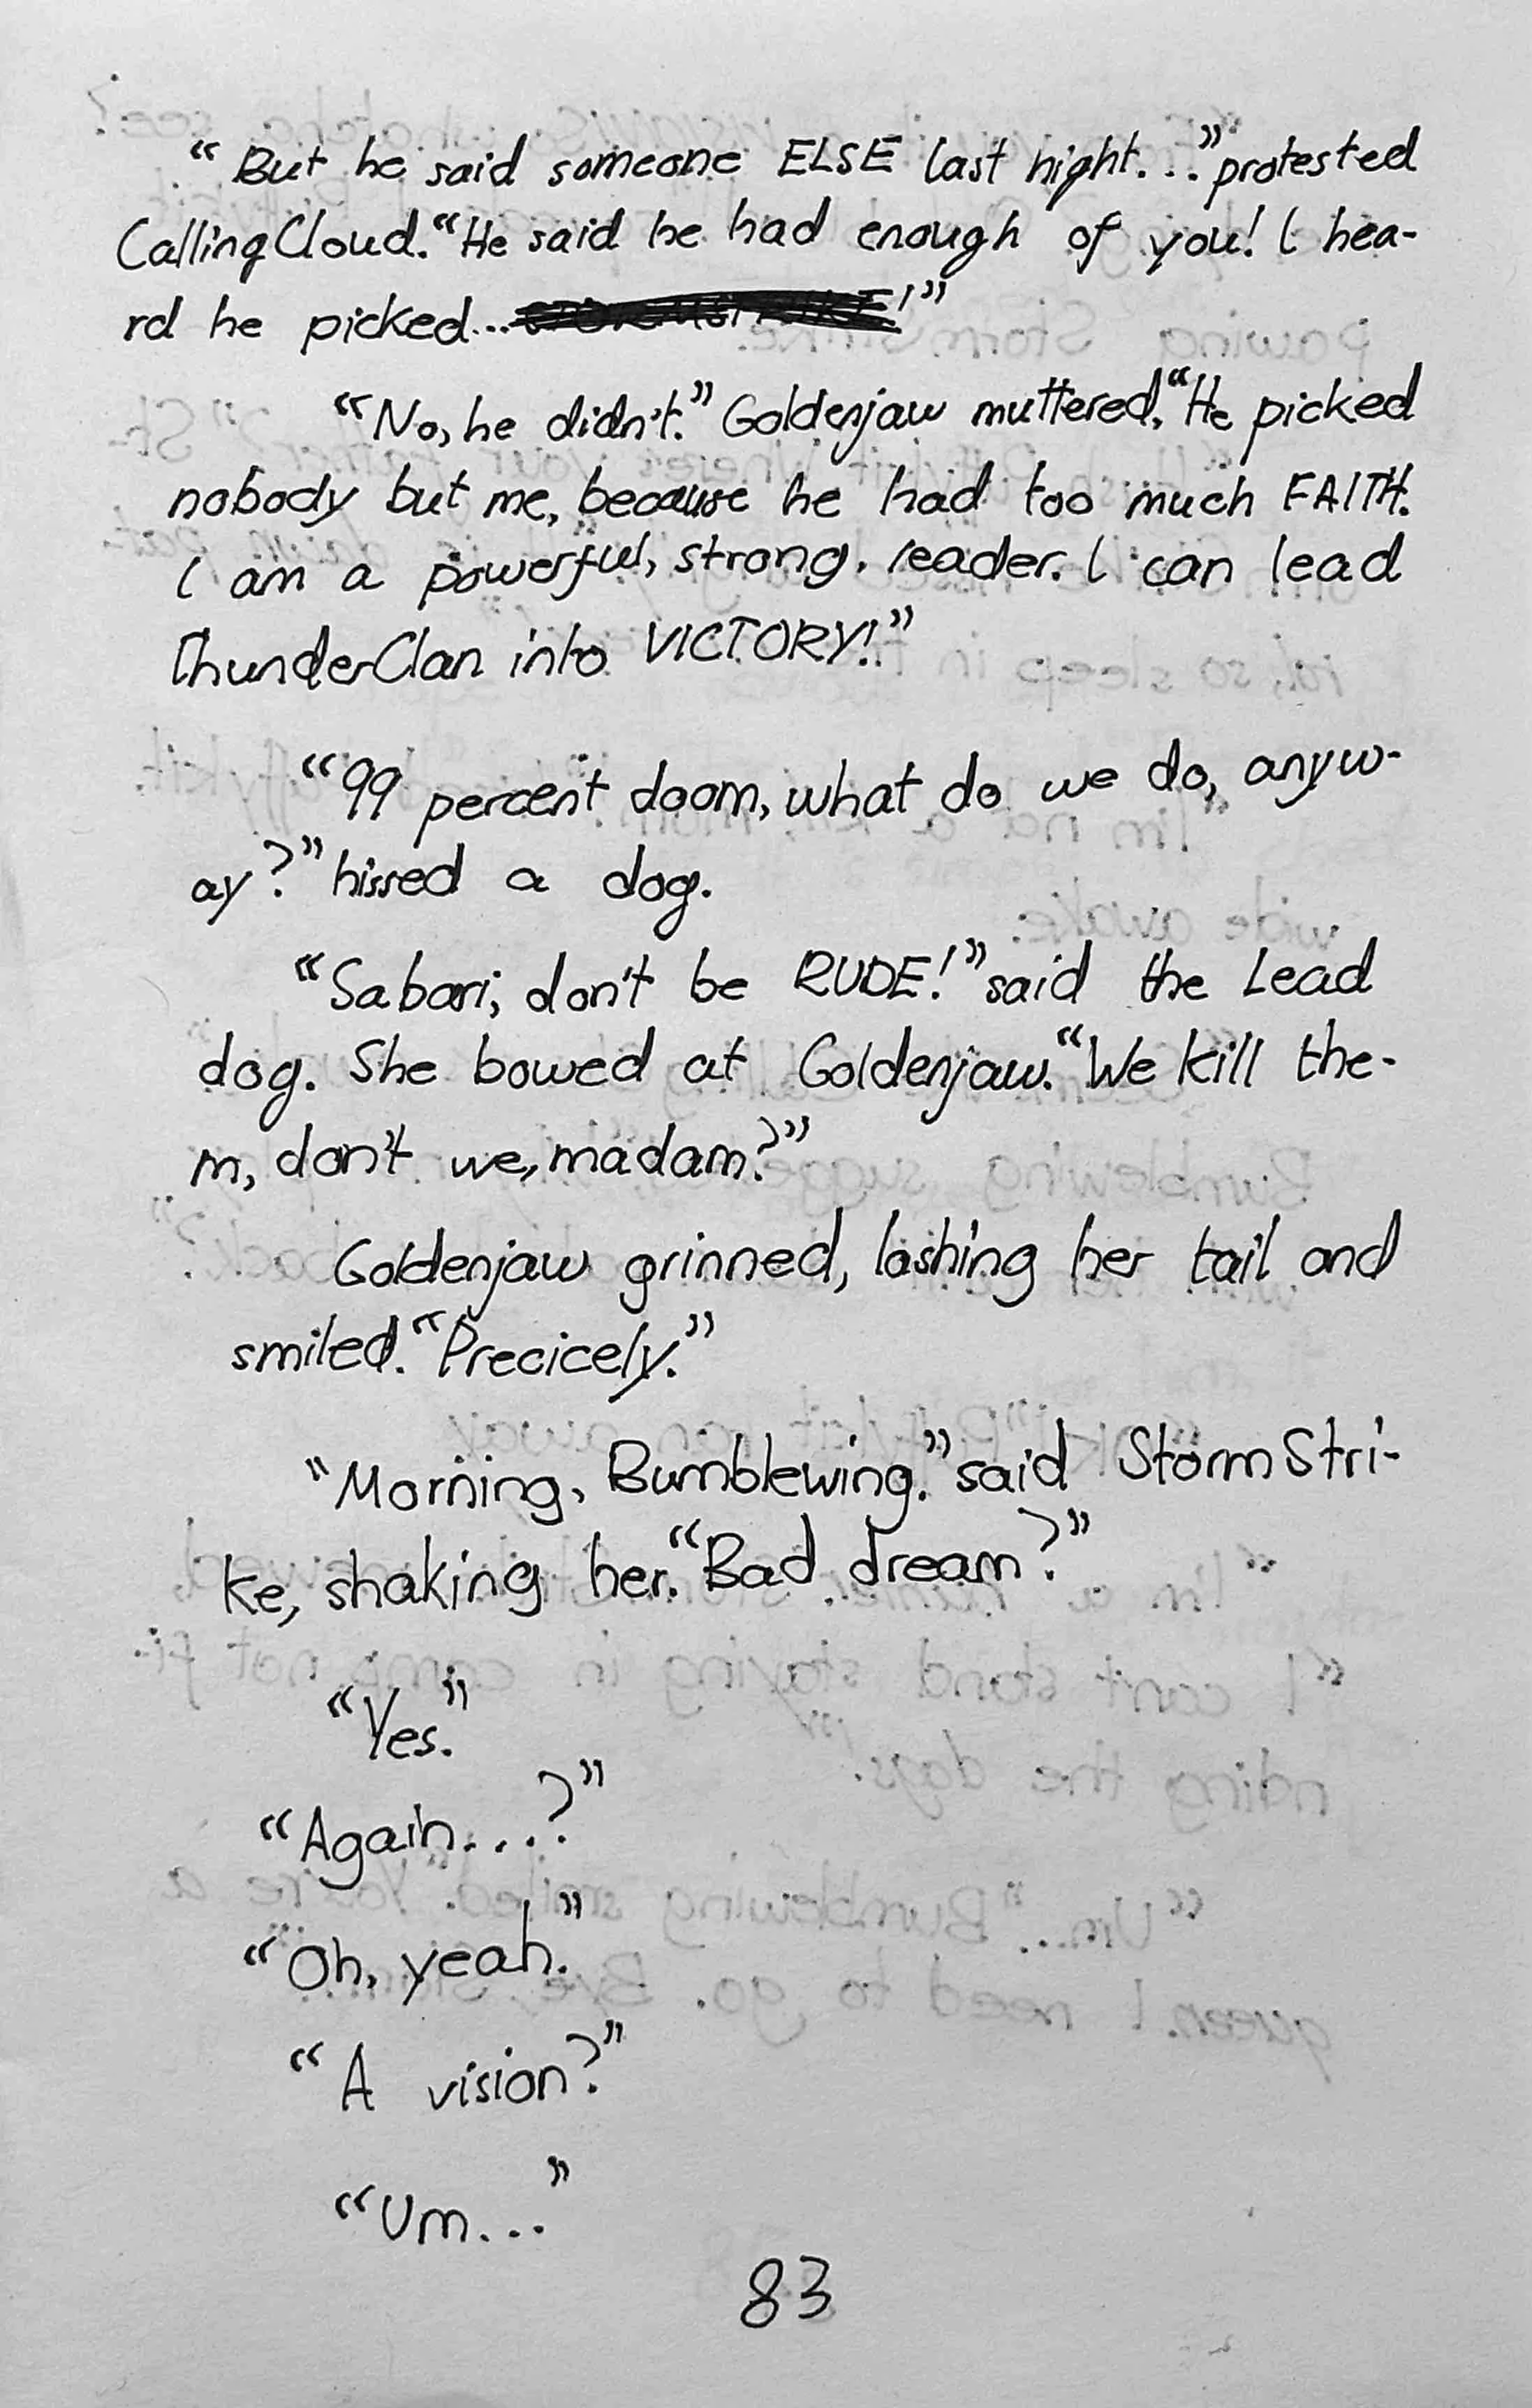 “But he said someone ELSE last night...” protested
CallingCloud. “He said he had enough of you! I hea-
rd he picked... !”
“No, he didn't.” Goldenjaw muttered. “He picked
nobody but me, because he had too much FAITH.
I am a powerful, strong, leader. I can lead
ThunderClan into VICTORY!”
“99 percent doom, what do we do, anyw-
ay?” hissed a dog.
“Sabari, don't be RUDE!” said the Lead
dog. She bowed at Goldenjaw. “We kill the-
m, don't we, madam?”
Goldenjaw grinned, lashing her tail and
smiled. “Precicely.”
“Morning, Bumblewing.” said StormStri-
ke, shaking her. “Bad dream?”
“Yes.”
“Again....?”
“Oh, yeah.”
“A vision?”
“Um...”
83